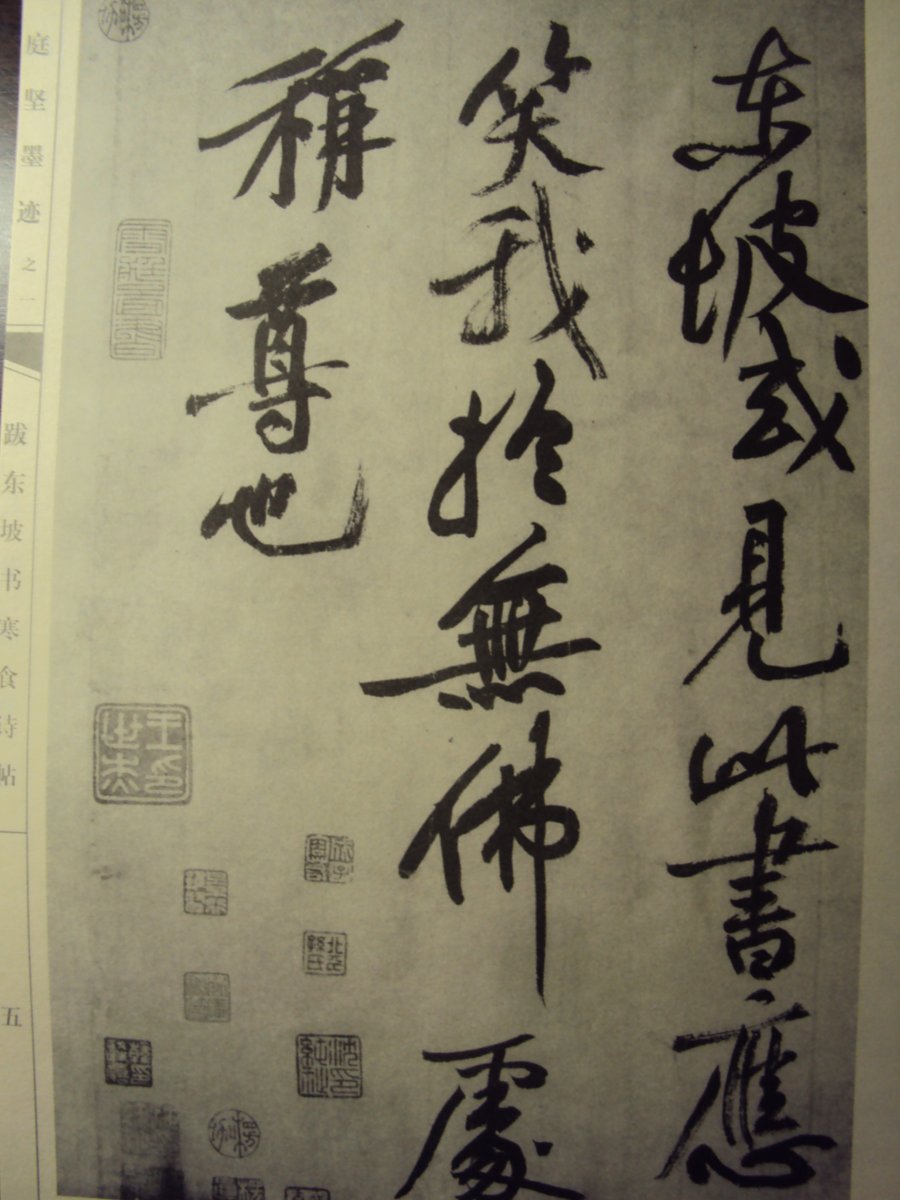 东坡或見此書應
笑我於無佛處
稱尊也
庭坚墨迹之一
跋东坡书寒食诗帖
五